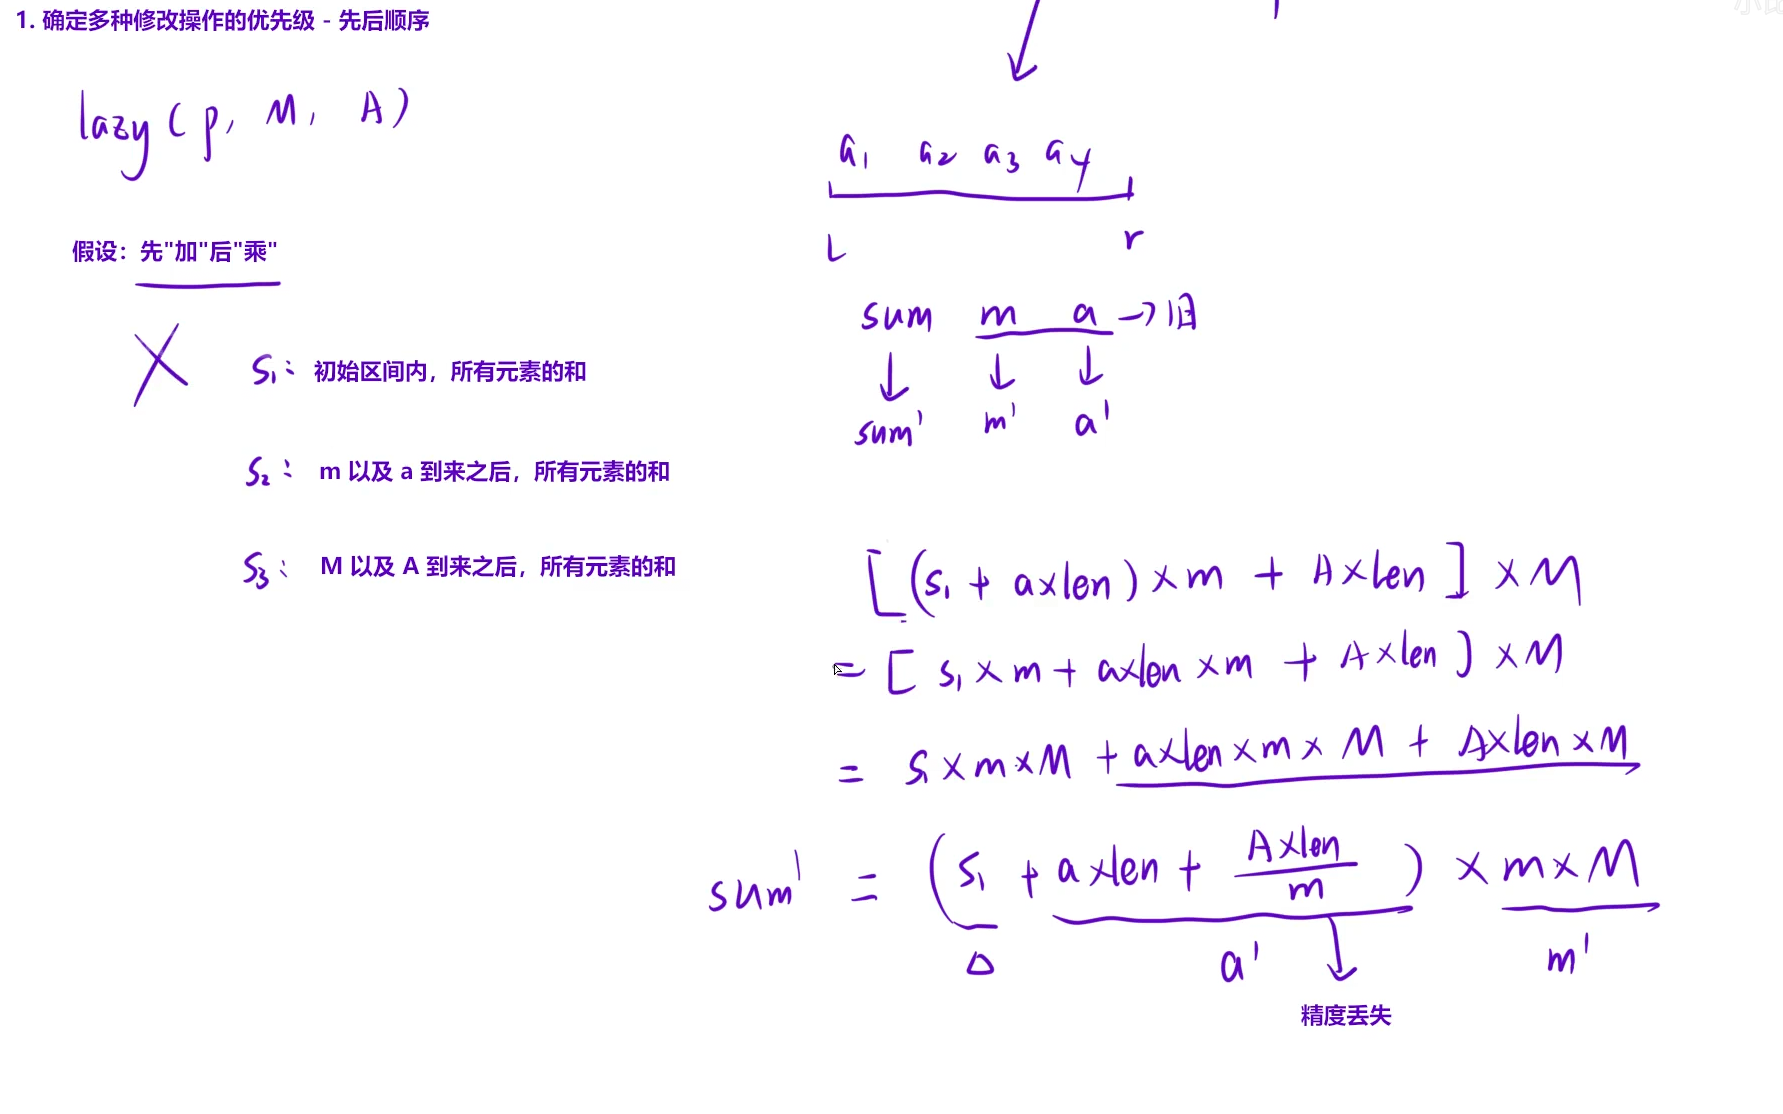 1. 确定多种修改操作的优先级 - 先后顺序
lazy(p, M, A)
假设：先"加"后"乘"
S₁： 初始区间内，所有元素的和
S₂： m 以及 a 到来之后，所有元素的和
S₃： M 以及 A 到来之后，所有元素的和
a₁ a₂ a₃ a₄
L r
sum m a → 旧
sum' m' a'
[(s₁ + a×len)×m + A×len] × M
= [s₁×m + a×len×m + A×len] × M
= s₁×m×M + a×len×m×M + A×len×M
sum' = (s₁ + a×len + A×len/m) × m×M
a' m'
精度丢失